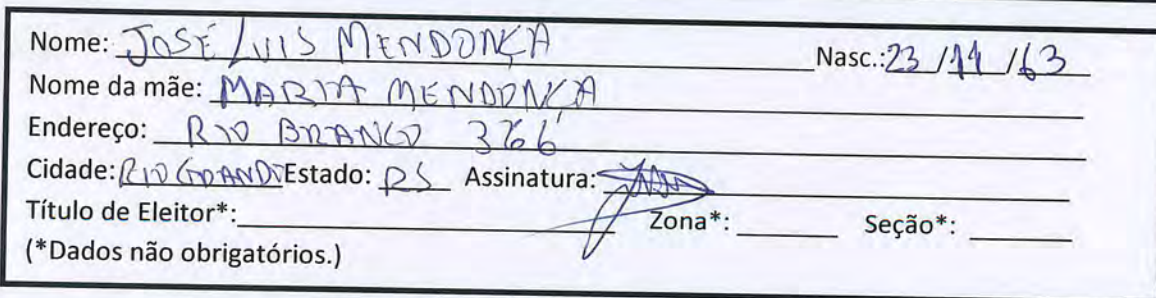 Nome: JOSÉ LUIS MENDONÇA Nasc.: 23/11/63
Nome da mãe: MARIA MENDONÇA
Endereço: RIO BRANCO 366
Cidade: RIO GRANDE Estado: RS Assinatura:
Título de Eleitor*: Zona*: Seção*:
(*Dados não obrigatórios.)